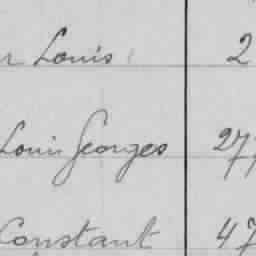 Louis 2
Louis Georges 27
Constant 47